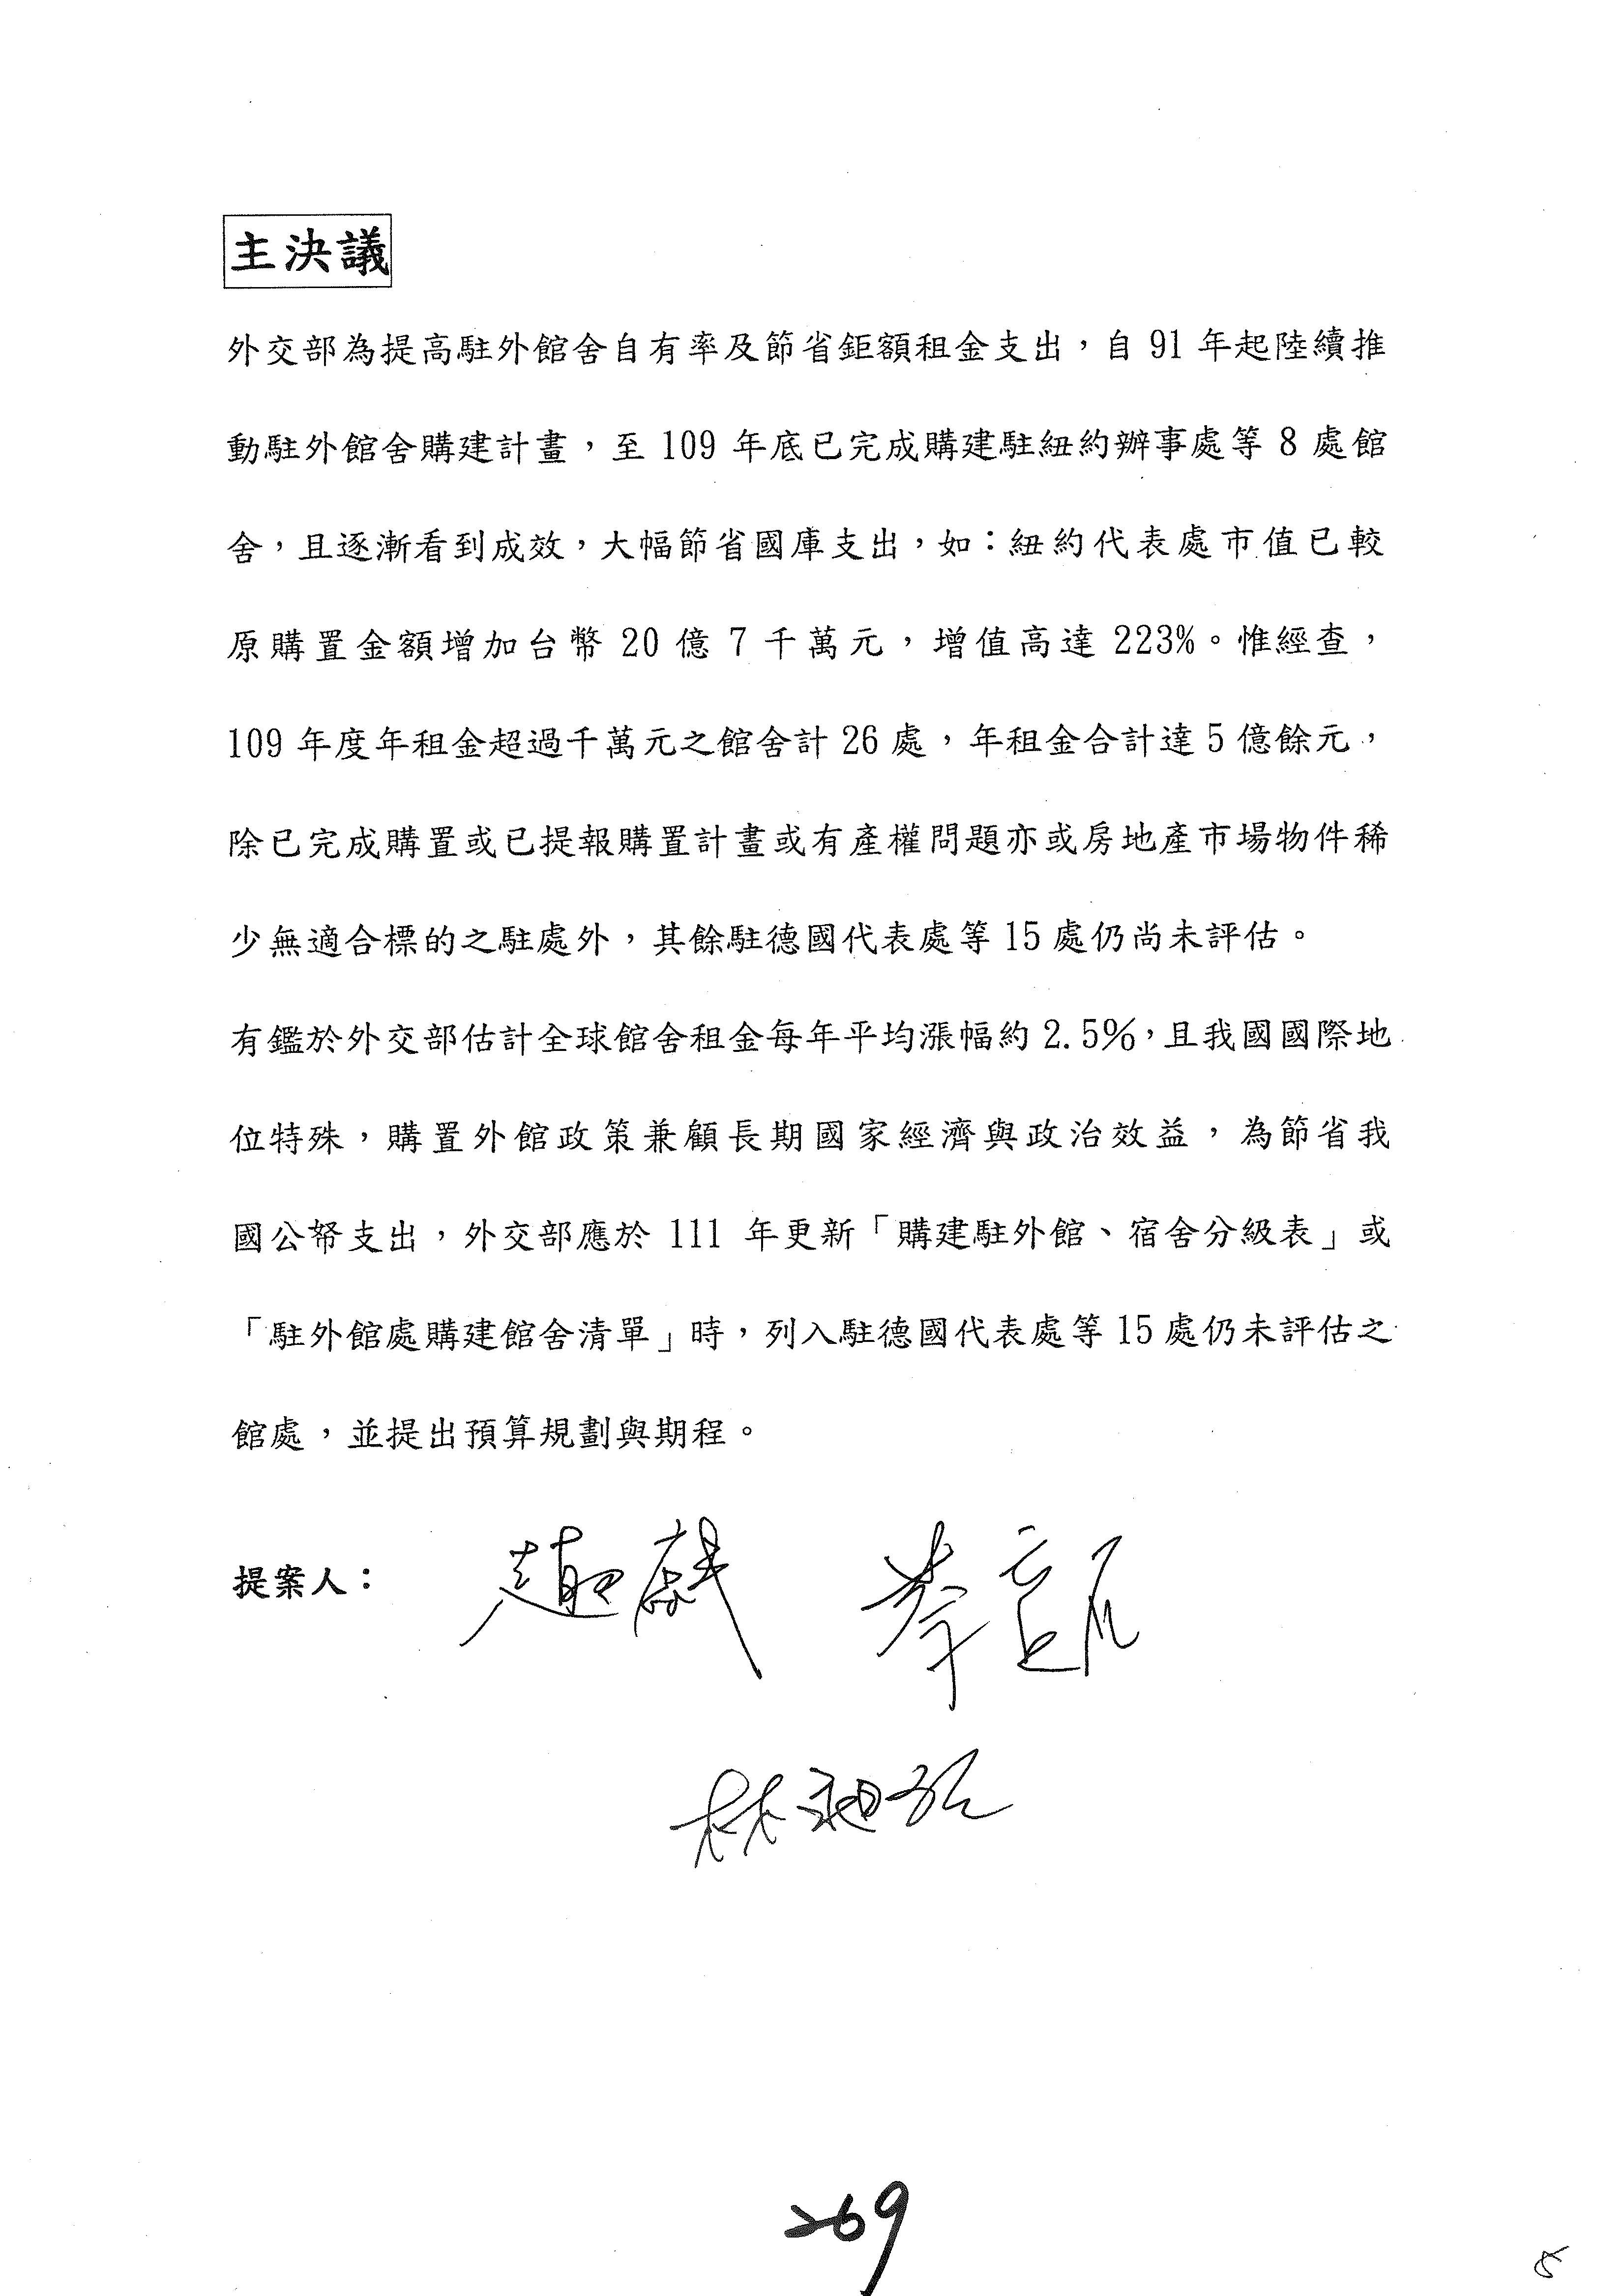 主決議
外交部為提高駐外館舍自有率及節省鉅額租金支出，自 91 年起陸續推
動駐外館舍購建計畫，至 109 年底已完成購建駐紐約辦事處等 8 處館
舍，且逐漸看到成效，大幅節省國庫支出，如：紐約代表處市值已較
原購置金額增加台幣 20 億 7 千萬元，增值高達 223%。惟經查，
109 年度年租金超過千萬元之館舍計 26 處，年租金合計達 5 億餘元，
除已完成購置或已提報購置計畫或有產權問題亦或房地產市場物件稀
少無適合標的之駐處外，其餘駐德國代表處等 15 處仍尚未評估。
有鑑於外交部估計全球館舍租金每年平均漲幅約 2.5%，且我國國際地
位特殊，購置外館政策兼顧長期國家經濟與政治效益，為節省我
國公帑支出，外交部應於 111 年更新「購建駐外館、宿舍分級表」或
「駐外館處購建館舍清單」時，列入駐德國代表處等 15 處仍未評估之
館處，並提出預算規劃與期程。
提案人：
林昶佐
269